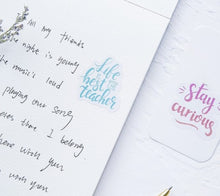 all my friends
the night is young
the music's loud
playing our song
ever time I belong
where with you
with you
Life
is the
best
teacher
stay
curious